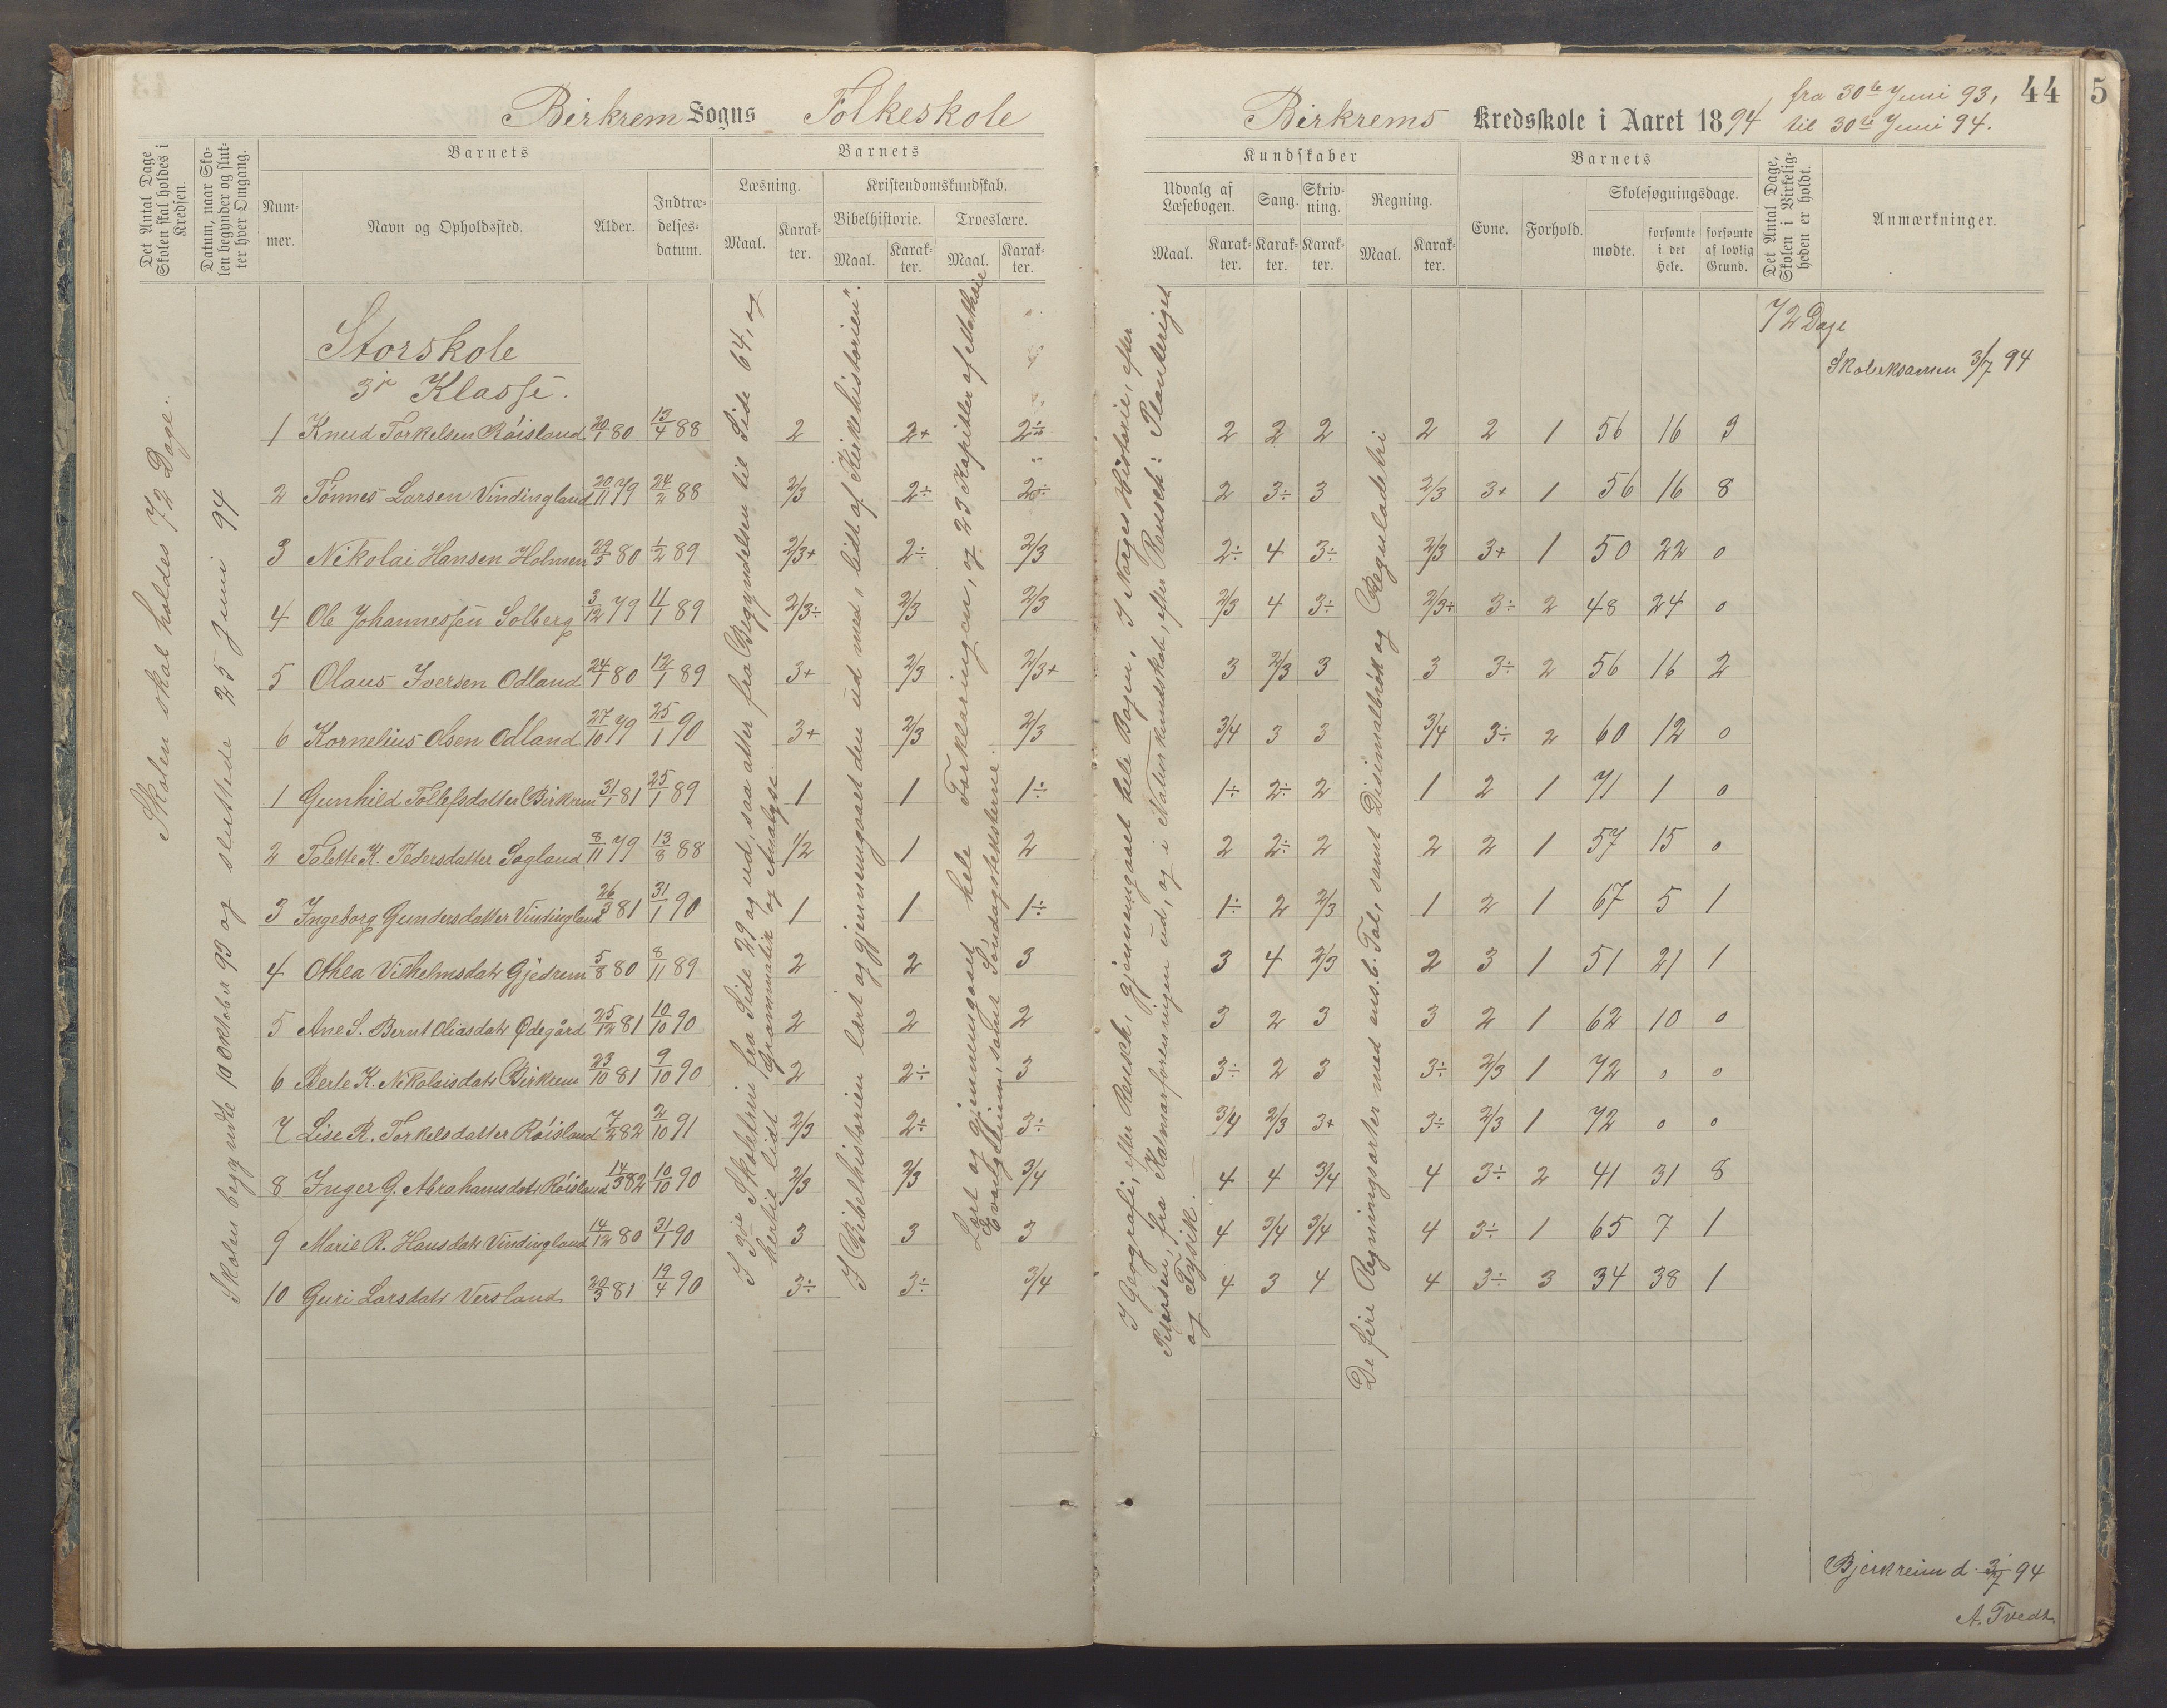 Birkrem Sogns Folkeskole
Det Antal Dage Skolen skal holdes i Kredsen.
Datum, naar Skolen begynder og slutter hver Omgang.
Barnets
Nummer.
Navn og Opholdssted.
Alder.
Indtrædelsesdatum.
Barnets
Læsning.
Maal.
Karakter.
Kristendomskundskab.
Bibelhistorie.
Maal.
Karakter.
Troeslære.
Maal.
Karakter.
Skolen skal holdes 72 Dage.
Skolen begyndte 10 Oktober 93 og sluttede 25 Juni 94
Storskole
3je Klasse.
I 3je Skoletrin fra Side 29 og ud, saa atter fra Begyndelsen til Side 64, og
hertil lidt Grammatik og Analyse.
I Bibelhistorien lært og gjennemgaaet den ud med, lidt af "Kirkehistorien".
Lært og gjennemgaaet hele Forklaringen, og 23 Kapitler af Mathæi
Evangelium, samt Søndagsteksterne.
1 Knud Torkelsen Röisland 20/1 80 13/4 88 2 2+ 2÷
2 Tönnes Larsen Vindingland 20/11 79 24/2 88 2/3 2÷ 2÷
3 Nikolai Hansen Holmen 29/3 80 1/2 89 2/3+ 2÷ 2/3
4 Ole Johannessen Solberg 3/12 79 11/1 89 2/3÷ 2/3 2/3
5 Olaus Iversen Odland 24/1 80 12/1 89 3+ 2/3 2/3+
6 Kornelius Olsen Odland 27/10 79 25/1 90 3+ 2/3 2/3
1 Gunhild Tollefsdatter Birkrem 31/1 81 25/1 89 1 1 1÷
2 Talette K. Pedersdatter Sagland 8/11 79 13/8 88 1/2 1 2
3 Ingeborg Gundersdatter Vindingland 26/3 81 31/1 90 1 1 1÷
4 Athea Vilhelmsdatr Gjedrem 5/8 80 8/11 89 2 2 3
5 Ane S. Bernt Oliasdatr Ødegård 25/12 81 10/10 90 2 2 2
6 Berte K. Nikolaisdatr Birkrem 23/10 81 9/10 90 2 2÷ 3
7 Lise R. Torkelsdatter Röisland 7/2 82 2/10 91 2/3 2÷ 3÷
8 Inger G. Abrahamsdatr Röisland 14/3 82 10/10 90 2/3 2/3 3/4
9 Marie R. Hansdatr Vindingland 14/12 80 31/1 90 3 3 3
10 Guri Larsdatr Versland 20/3 81 19/4 90 3÷ 3÷ 3/4
Birkrems Kredsskole i Aaret 1894
fra 30te Juni 93,
til 30te Juni 94.
44
5
Kundskaber
Udvalg af Læsebogen.
Maal.
Karakter.
Sang.
Karakter.
Skrivning.
Karakter.
Regning.
Maal.
Karakter.
Barnets
Evne.
Forhold.
Skolesøgningsdage.
mødte.
forsømte i det Hele.
forsømte af lovlig Grund.
Det Antal Dage, Skolen i Virkeligheden er holdt.
Anmærkninger.
I Geografi, efter Reusch, gjennemgaaet hele Bogen, I Norges Historie, efter
Petersen, fra Kalmarforeningen ud, og i Naturkundskab, efter Reusch: Planteriget
og Fysik.
De fire Regningsarter med ens. b. Tal, samt Desimalbrök og Reguladetri
72 Dage
Skoleeksamen 3/7 94
2 2 2 2 2 1 56 16 9
2 3÷ 3 2/3 3+ 1 56 16 8
2÷ 4 3÷ 2/3 3+ 1 50 22 0
2/3 4 3÷ 2/3÷ 3÷ 2 48 24 0
3 2/3 3 3 3÷ 2 56 16 2
3/4 3 3 3/4 3÷ 2 60 12 0
1÷ 2÷ 2 1 2 1 71 1 0
2 2÷ 2 2 2 1 57 15 0
1÷ 2 2/3 1 2 1 67 5 1
3 4 2/3 2 3 1 51 21 1
3 2 3 3 2 1 62 10 0
3÷ 2 3 3÷ 2/3 1 72 0 0
3/4 2/3 3+ 3÷ 2/3 1 72 0 0
4 4 3/4 4 3÷ 2 41 31 8
4 3/4 3/4 4 3÷ 1 65 7 1
4 3 4 4 3÷ 3 34 38 1
Bjerkreim d. 3/7 94
A. Tvedt